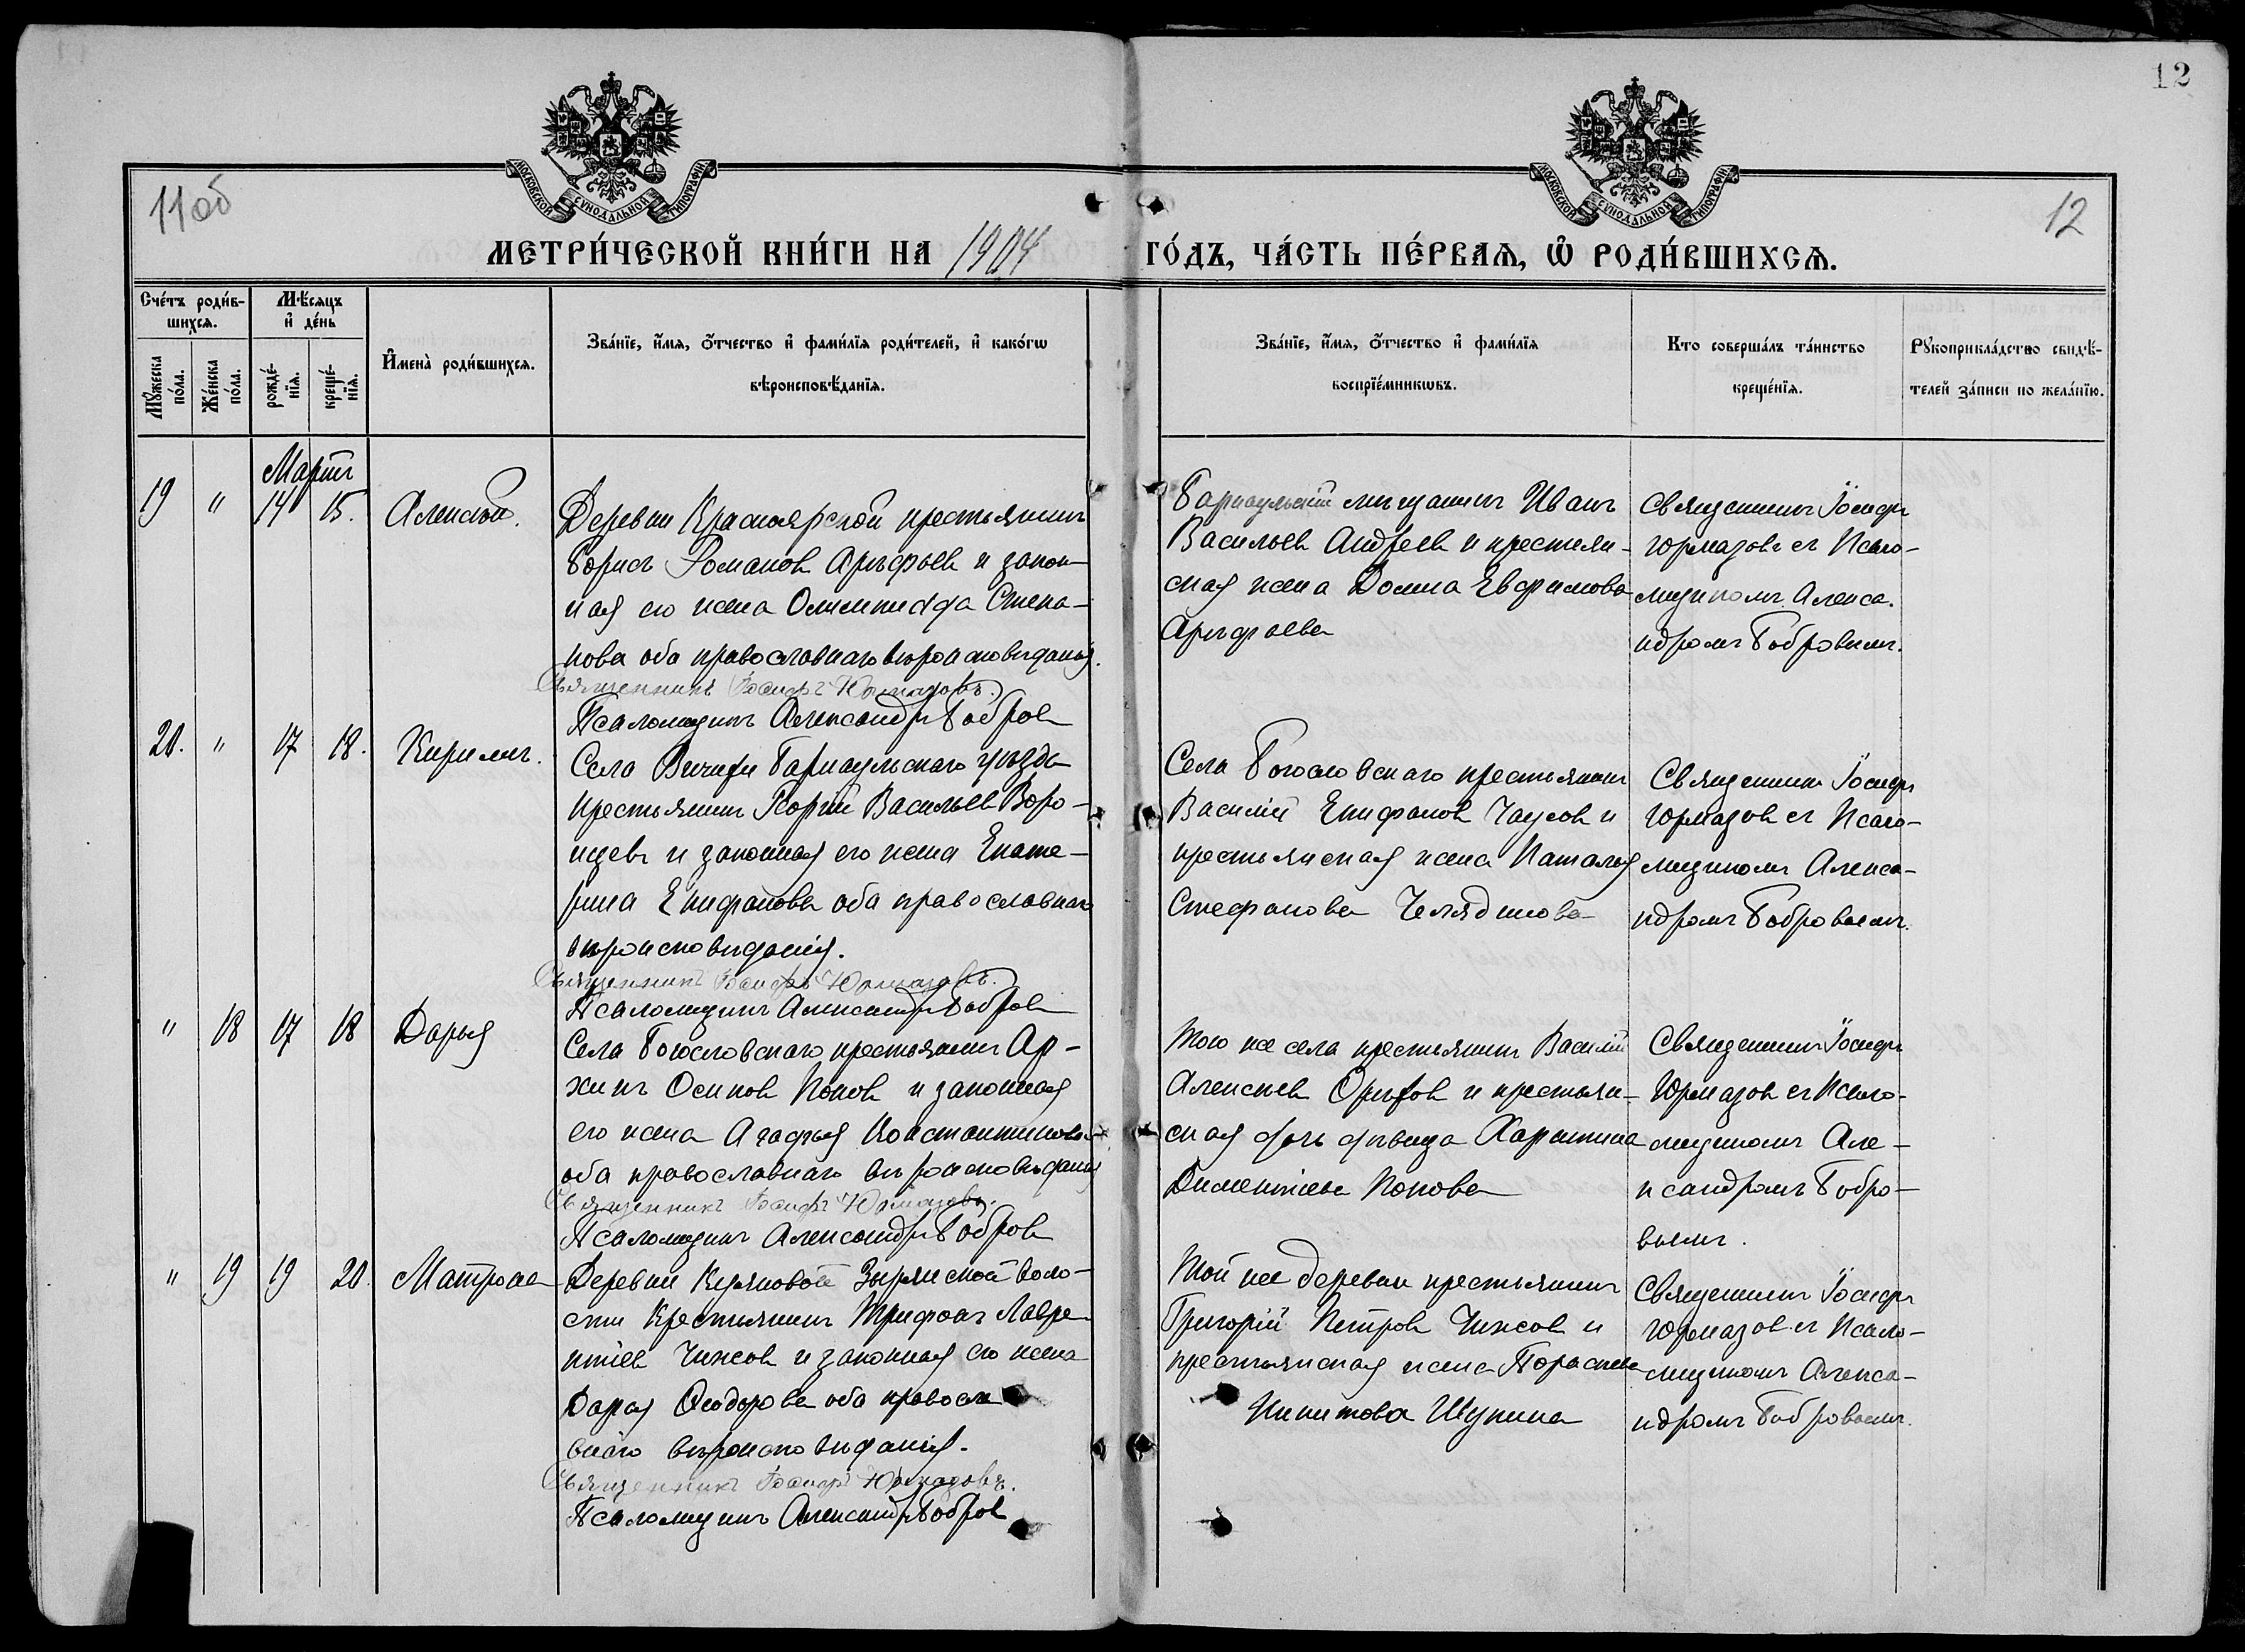 12
МОСКОВСКОЙ СѴНОДАЛЬНОЙ ТИПОГРАФІИ
МОСКОВСКОЙ СѴНОДАЛЬНОЙ ТИПОГРАФІИ
11об
12
МЕТРИ́ЧЕСКОЙ КНИ́ГИ НА 1904 ГО́ДЪ, ЧА́СТЬ ПЕ́РВАѦ, Ѡ҆ РОДИ́ВШИХСѦ.
Сче́тъ роди́в-
шихсѧ.
Мѣ́сѧцъ
и҆ де́нь
Мꙋ́жеска
по́ла.
Же́нска
по́ла.
рожде́-
нїѧ.
креще́-
нїѧ.
И҆мена̀ роди́вшихсѧ.
Зва́нїе, и҆́мѧ, ѻ҆́тчество и҆ фами́лїѧ роди́телей, и҆ како́гѡ
вѣроисповѣ́данїѧ.
Зва́нїе, и҆́мѧ, ѻ҆́тчество и҆ фами́лїѧ
воспрїе́мникѡвъ.
Кто соверша́лъ та́инство
креще́нїѧ.
Рꙋкоприкла́дство свидѣ́-
телей за́писи по жела́нїю.
Мартъ
19 " 14 15. Алексѣй.
Деревни Красноярской крестьянинъ
Борисъ Романов Арефьев и закон-
ная его жена Олимпиада Степа-
нова оба православнаго вѣроисповѣданія.
Священникъ Іосифъ Юрмазовъ.
Псаломщикъ Александръ Бобров
Барнаульскій мещанинъ Иванъ
Васильев Андреев и крестьян-
ская жена Домна Евфимова
Арефьева
Священникъ Іосифъ
Юрмазовъ съ Псало-
мщикомъ Алекса-
ндромъ Бобровымъ.
20. " 17 18. Кирилъ.
Села Барнаульскаго уѣзда
крестьянинъ Георгій Васильев Воро-
нцевъ и законная его жена Екате-
рина Епифанова оба православнаго
вѣроисповѣданія.
Священникъ Іосифъ Юрмазовъ.
Псаломщикъ Александръ Бобров
Села Богословскаго крестьянинъ
Василій Епифанов Чаусов и
крестьянская жена Наталья
Стефанова Челядинова
Священникъ Іосифъ
Юрмазов съ Псало-
мщикомъ Алекса-
ндромъ Бобровымъ.
" 18 17 18 Дарья
Села Богословскаго крестьянинъ Ар-
хипъ Осипов Попов и законная
его жена Агафья Константинова
оба православнаго вѣроисповѣданія
Священникъ Іосифъ Юрмазовъ.
Псаломщикъ Александръ Бобров
Того же села крестьянинъ Василій
Алексѣев Орѣхов и крестьян-
ская дочь дѣвица Харитина
Диментіева Попова
Священникъ Іосифъ
Юрмазов съ Псало-
мщикомъ Але-
ксандромъ Бобро-
вымъ.
" 19 19 20. Матрона
Деревни Зырянской воло-
сти Крестьянинъ Трифонъ Лавре-
нтіев Чижов и законная его жена
Дарья Ѳеодорова оба правосла
внаго вѣроисповѣданія.
Священникъ Іосифъ Юрмазовъ.
Псаломщикъ Александръ Бобров
Той же деревни крестьянинъ
Григорій Петров Чижов и
крестьянская жена Параскева
Никитова Шукина
Священникъ Іосифъ
Юрмазов съ Псало-
мщикомъ Алекса-
ндромъ Бобровымъ.